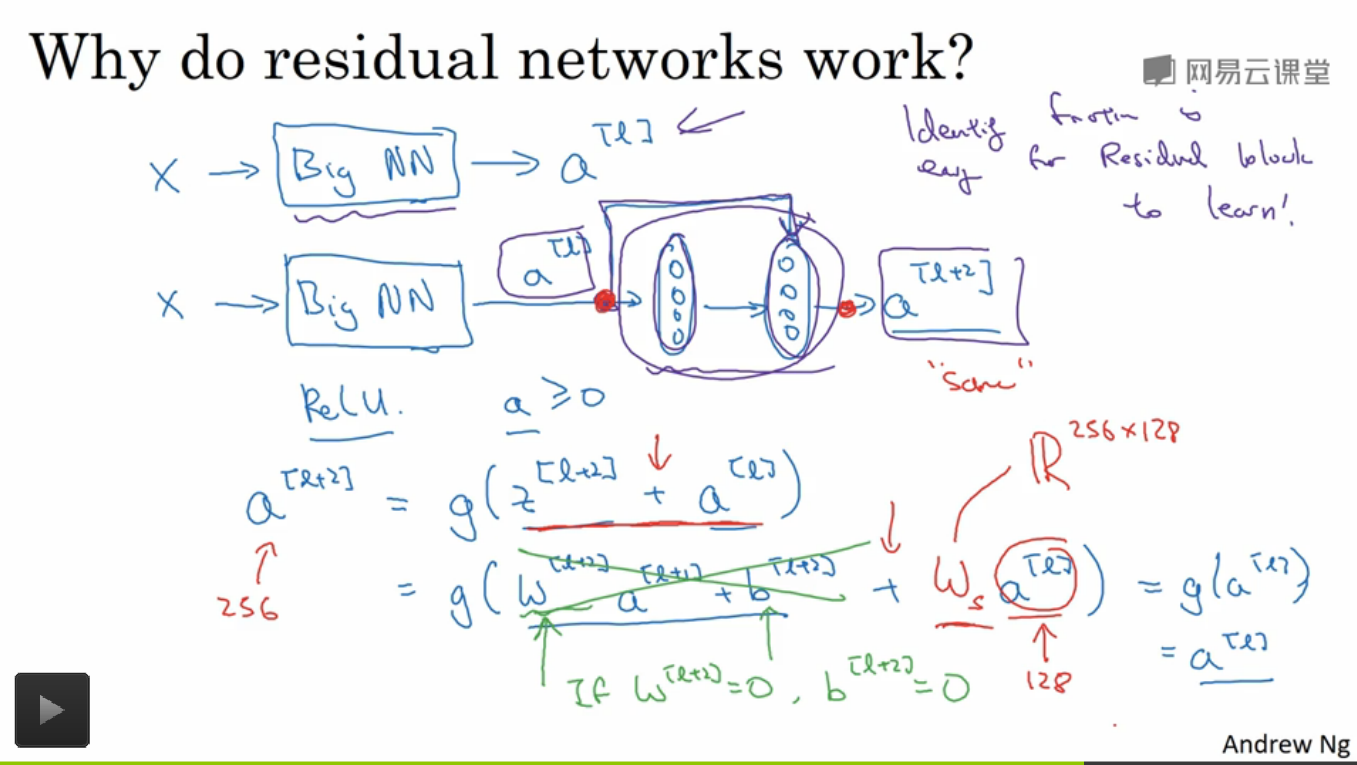 Why do residual networks work?
网易云课堂
X → Big NN → a^[l] ←
Identity function is
easy for Residual block
to learn!
X → Big NN → a^[l] → → a^[l+2]
"same"
ReLU. a ≥ 0
ℝ^256×128
a^[l+2] = g(z^[l+2] + a^[l])
= g(W^[l+2] a^[l+1] + b^[l+2] + W_s a^[l]) = g(a^[l])
256
= a^[l]
If W^[l+2] = 0, b^[l+2] = 0
128
Andrew Ng